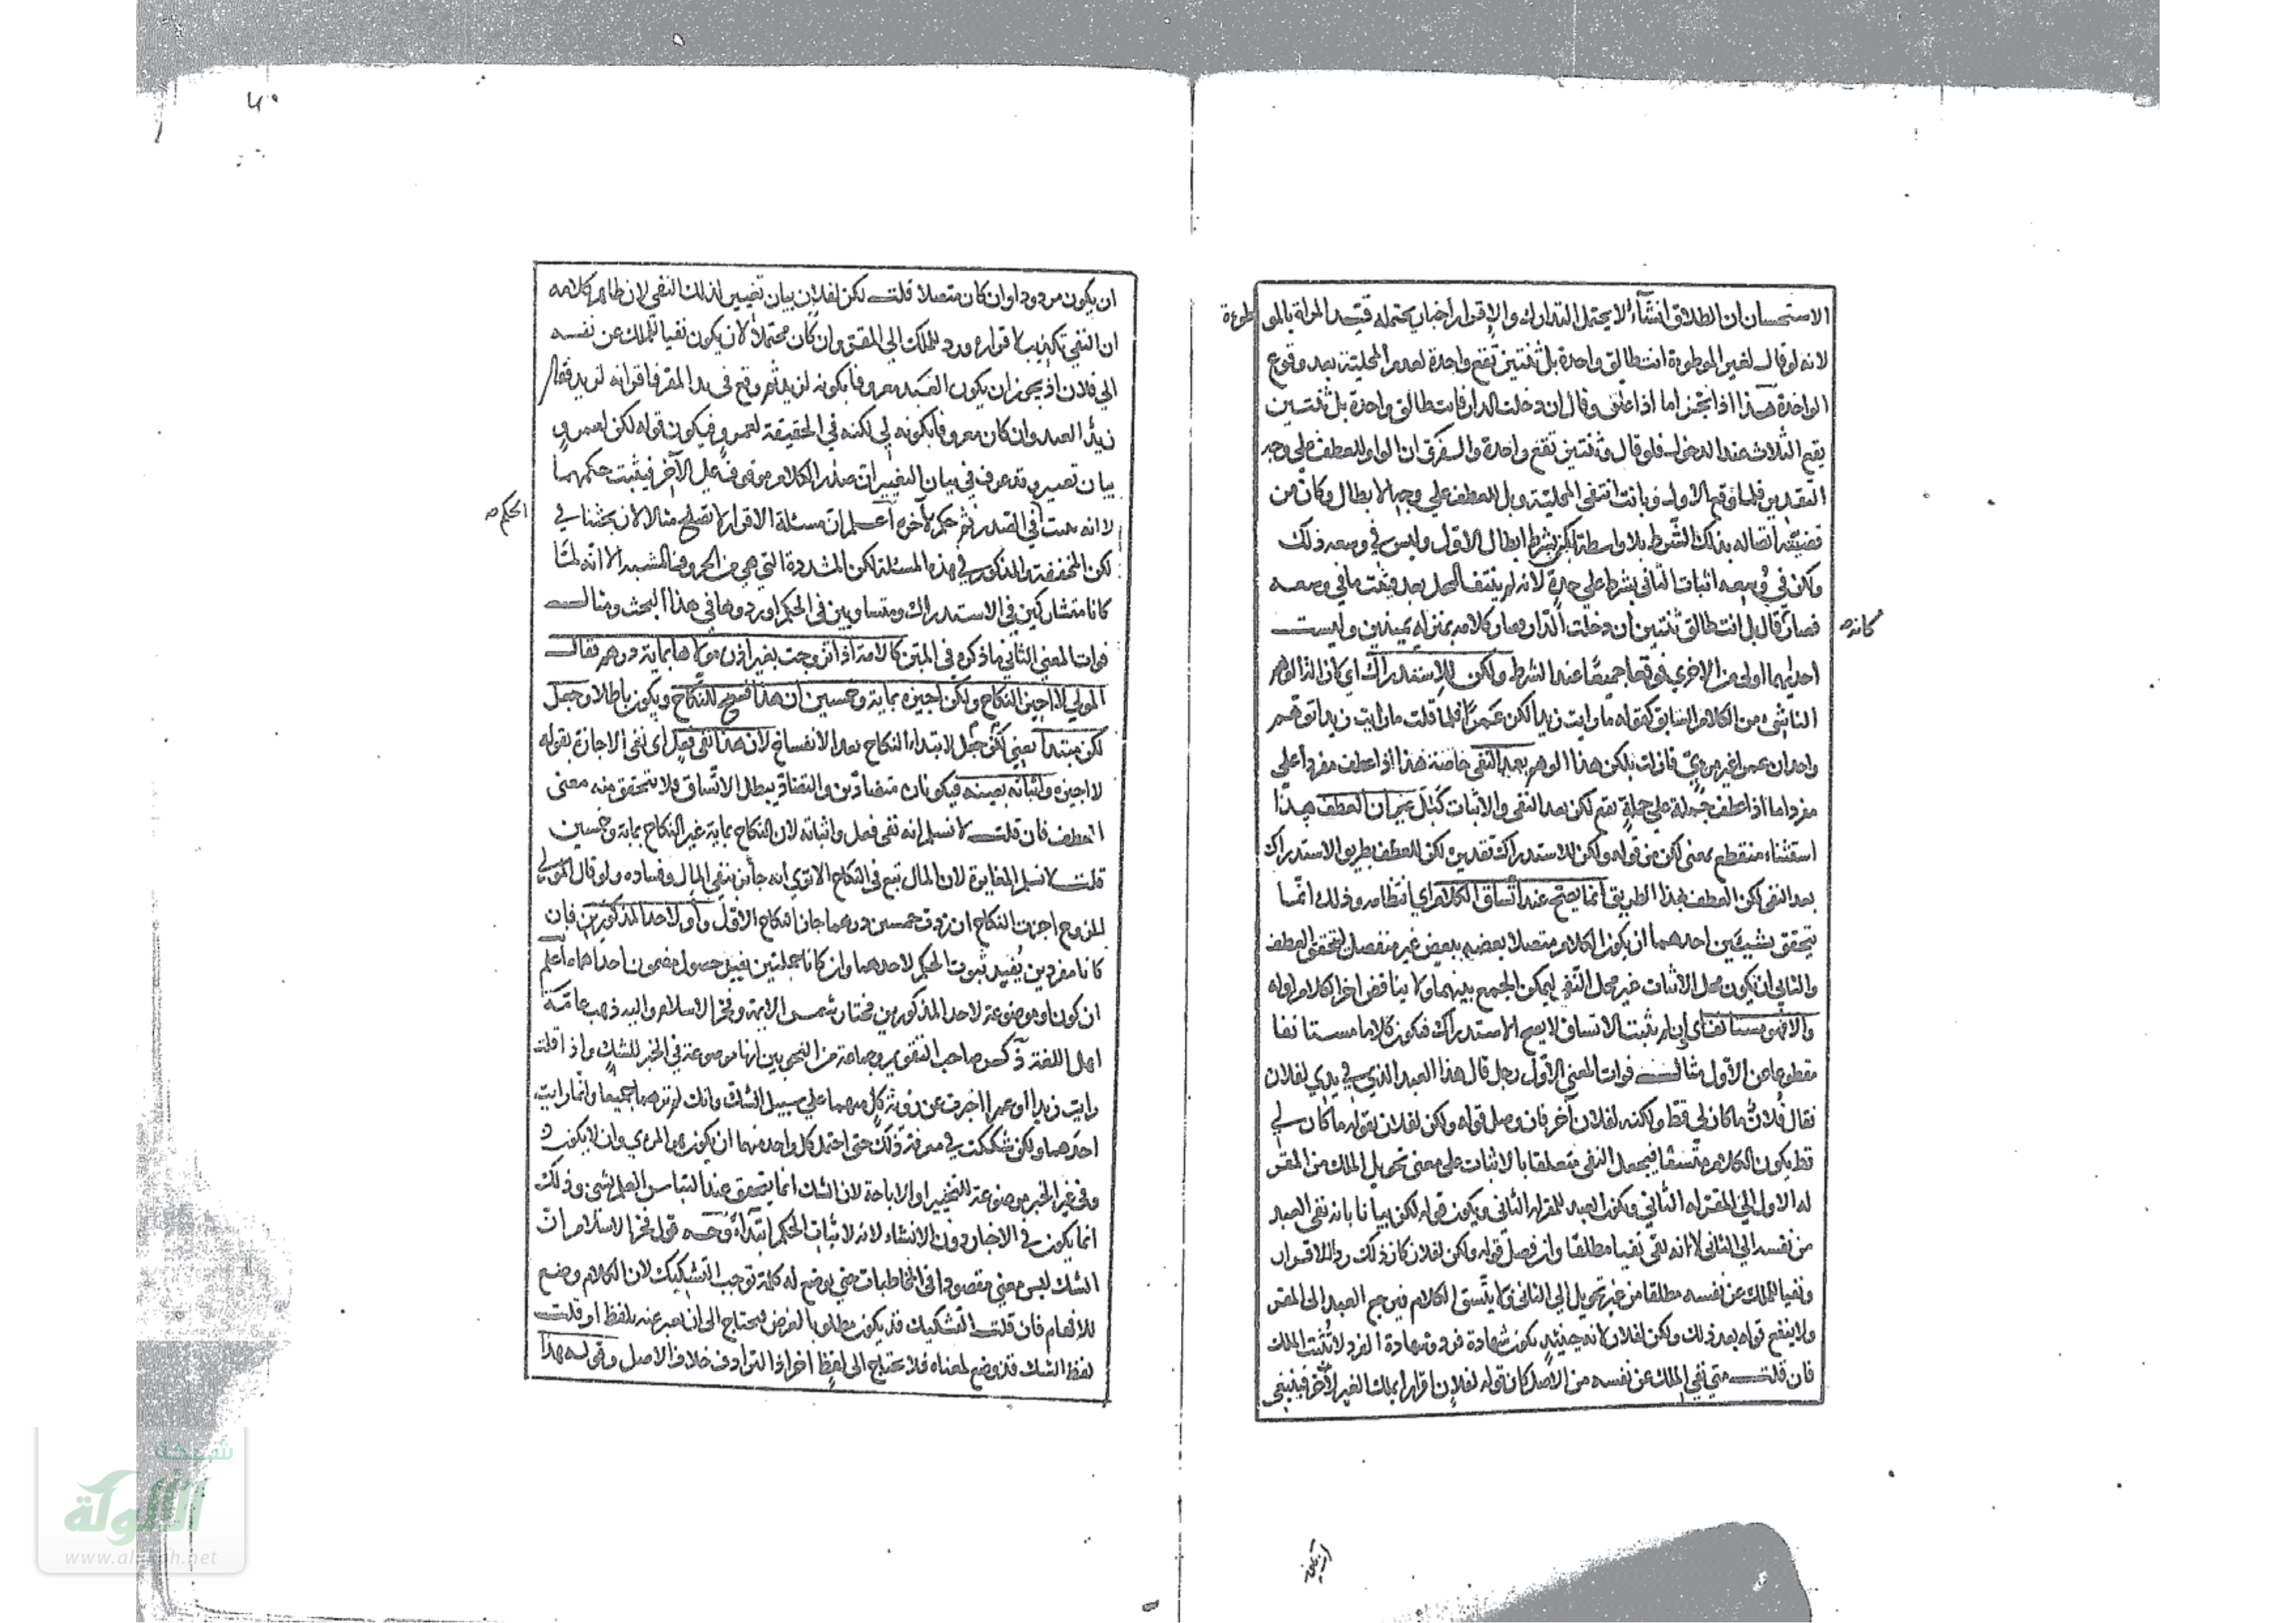 الاستحسان ان الطلاق انشاء لا يحتمل التدارك والاقرار اخبار يحتمله قيد المراة بالمو
طوءة
لانه لو قال لغير الموطوءة انت طالق واحدة بل ثنتين تقع واحدة لعدم المحلية بعد وقوع
الواحدة هذا اذا نجز اما اذا علق وقال ان دخلت الدار فانت طالق واحدة بل ثنتين
يقع الثلاث عند الدخول فلو قال وثنتين تقع واحدة والفرق ان الواو للعطف على وجه
التقدير فلما وقع الاول وبانت انتفى المحلية وبل للعطف على وجه الابطال وكان من
قضيته اتصاله بذلك الشرط بلا واسطة لكن بشرط ابطال الاول وليس في وسعه ذلك
ولكن في وسعه اثبات الثاني بشرط على حدة لانه لم ينتف المحل بعد فيثبت ما في وسعه
فصار قال بل انت طالق ثنتين ان دخلت الدار وصار كلامه بمنزلة يمينين وليست
كانه
احديهما اولى من الاخرى فوقعا جميعا عند الشرط ولكن للاستدراك اي كان الذا الوهم
الناشئ من الكلام السابق كقوله ما رايت زيدا لكن عمرا فلما قلت ما رايت زيدا توهم
واحد ان عمرا غير مرئي فازلت بلكن هذا الوهم بعد النفي خاصة هذا اذا عطف مفردا على
مفرد اما اذا عطف جملة على جملة تقع لكن بعد النفي والاثبات كبل غير ان العطف هذا
استثناء منقطع بمعنى لكن من قوله ولكن للاستدراك تقديره لكن للعطف بطريق الاستدراك
بعد النفي لكن العطف بهذا الطريق انما يصح عند اتساق الكلام اي انتظامه وذلك انما
يتحقق بشيئين احدهما ان يكون الكلام متصلا بعضه ببعض غير منفصل ليتحقق العطف
والثاني ان يكون محل الاثبات غير محل النفي ليمكن الجمع بينهما ولا يناقض اخر الكلام اوله
والا فهو مستانف اي ان لم يثبت الاتساق لا يصح الاستدراك فيكون كلاما مستانفا
مقطوعا عن الاول مثال فوات المعنى الاول رجل قال هذا العبد الذي في يدي لفلان
فقال فلان ما كان لي قط ولكنه لفلان آخر فان وصل قوله ولكن لفلان بقوله ما كان لي
قط يكون الكلام متسقا فيجعل النفي متعلقا بالاثبات على معنى تحويل الملك من المقر
له الاول الى المقر له الثاني ويكون العبد للمقر له الثاني ويكون قوله لكن بيانا بانه نفى العبد
من نفسه الى الثاني لا انه نفي نفيا مطلقا وان فصل قوله ولكن لفلان كان ذلك ردا للاقرار
ونفيا للملك عن نفسه مطلقا من غير تحويل الى الثاني ولا يتسق الكلام فيرجع العبد الى المقر
ولا ينفع قوله بعد ذلك ولكن لفلان لانه حينئذ يكون شهادة فرد وشهادة الفرد لا تثبت الملك
فان قلت متى نفى الملك عن نفسه من الاصل كان قوله لفلان اقرارا بملك الغير لاخر فينبغي
ان يكون مردودا وان كان متصلا قلت لكن لفلان بيان تغيير لذلك النفي لان ظاهر كلامه
ان النفي تكذيب لاقراره ورد للملك الى المقر وان كان محتملا لان يكون نفيا للملك عن نفسه
الى فلان اذ يجوز ان يكون العبد معروفا بكونه لزيد ثم وقع في يد المقر فاقر انه لزيد فقال
زيد العبد وان كان معروفا بكونه لي لكنه في الحقيقة لعمرو فيكون قوله لكن لعمرو
بيان تغيير وقد عرف في بيان التغيير ان صدر الكلام موقوف على الآخر فيثبت حكمهما
لا انه يثبت في الصدر ثم حكم بآخره اعلم ان مسئلة الاقرار لا تصلح مثالا لان بحثنا في
الحكم صح
لكن المخففة والمذكور في هذه المسئلة لكن المشددة التي هي من الحروف المشبهة الا انه لما
كانا متشاركين في الاستدراك ومتساويين في الحكم اوردوها في هذا البحث ومثال
فوات المعنى الثاني ما ذكره في المتن كالامة اذا تزوجت بغير اذن مولاها بماية درهم فقال
المولى لا اجيز النكاح ولكن اجيزه بماية وخمسين ان هذا فسخ للنكاح ويكون باطلا وجعل
لكن مبتدا يعني لكن جعل لابتداء النكاح بعد الانفساخ لان هذا نفي فعل اي نفي الاجازة بقوله
لا اجيزه واثباته بعينه فيكونان متضادين والتضاد يبطل الاتساق فلا يتحقق منه معنى
العطف فان قلت لا نسلم انه نفي فعل واثباته لان النكاح بماية غير النكاح بماية وخمسين
قلت لا نسلم المغايرة لان المال تبع في النكاح الا ترى انه جائز بنفي المال وفساده ولو قال المولى
للزوج اجزت النكاح ان زدت خمسين درهما جاز النكاح الاول واو لاحد المذكورين فان
كانا مفردين يفيد ثبوت الحكم لاحدهما وان كانا جملتين يفيد حصول مضمون احداهما واعلم
ان كون او موضوعة لاحد المذكورين مختار شمس الايمة وفخر الاسلام واليه ذهب عامة
اهل اللغة ذكر صاحب التقويم وجماعة من النحويين انها موضوعة في الخبر للشك واذا قلت
رايت زيدا او عمرا اخبرت عن رؤية كل منهما على سبيل الشك وانك لم ترهما جميعا وانما رايت
احدهما ولكن شككت في معرفة ذلك حتى احتمل كل واحد منهما ان يكون هو المرئي وان لا يكون
وفي غير الخبر موضوعة للتخيير او الاباحة لان الشك انما يتحقق عند التباس العلم بشيء وذلك
انما يكون في الاخبار دون الانشاء لانه لاثبات الحكم ابتداء وجه قول فخر الاسلام ان
الشك ليس معنى مقصودا في المخاطبات حتى يوضع له كلمة توجب التشكيك لان الكلام وضع
للافهام فان قلت التشكيك قد يكون مطلوبا لغرض فيحتاج الى ان يعبر عنه بلفظ او قلت
لفظ الشك قد وضع لمعناه فلا يحتاج الى لفظ اخر اذ الترادف خلاف الاصل وقوله هذا
شبكة
الألوكة
www.alukah.net